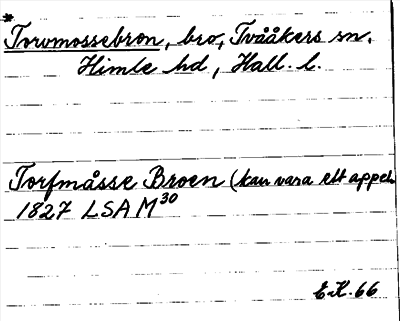 *
Torvmossebron, bro, Tvååkers sn.
Himle hd, Hall. l.
Torfmåsse Broen (kan vara ett appel.
1827 LSA M³⁰
E.K. 66